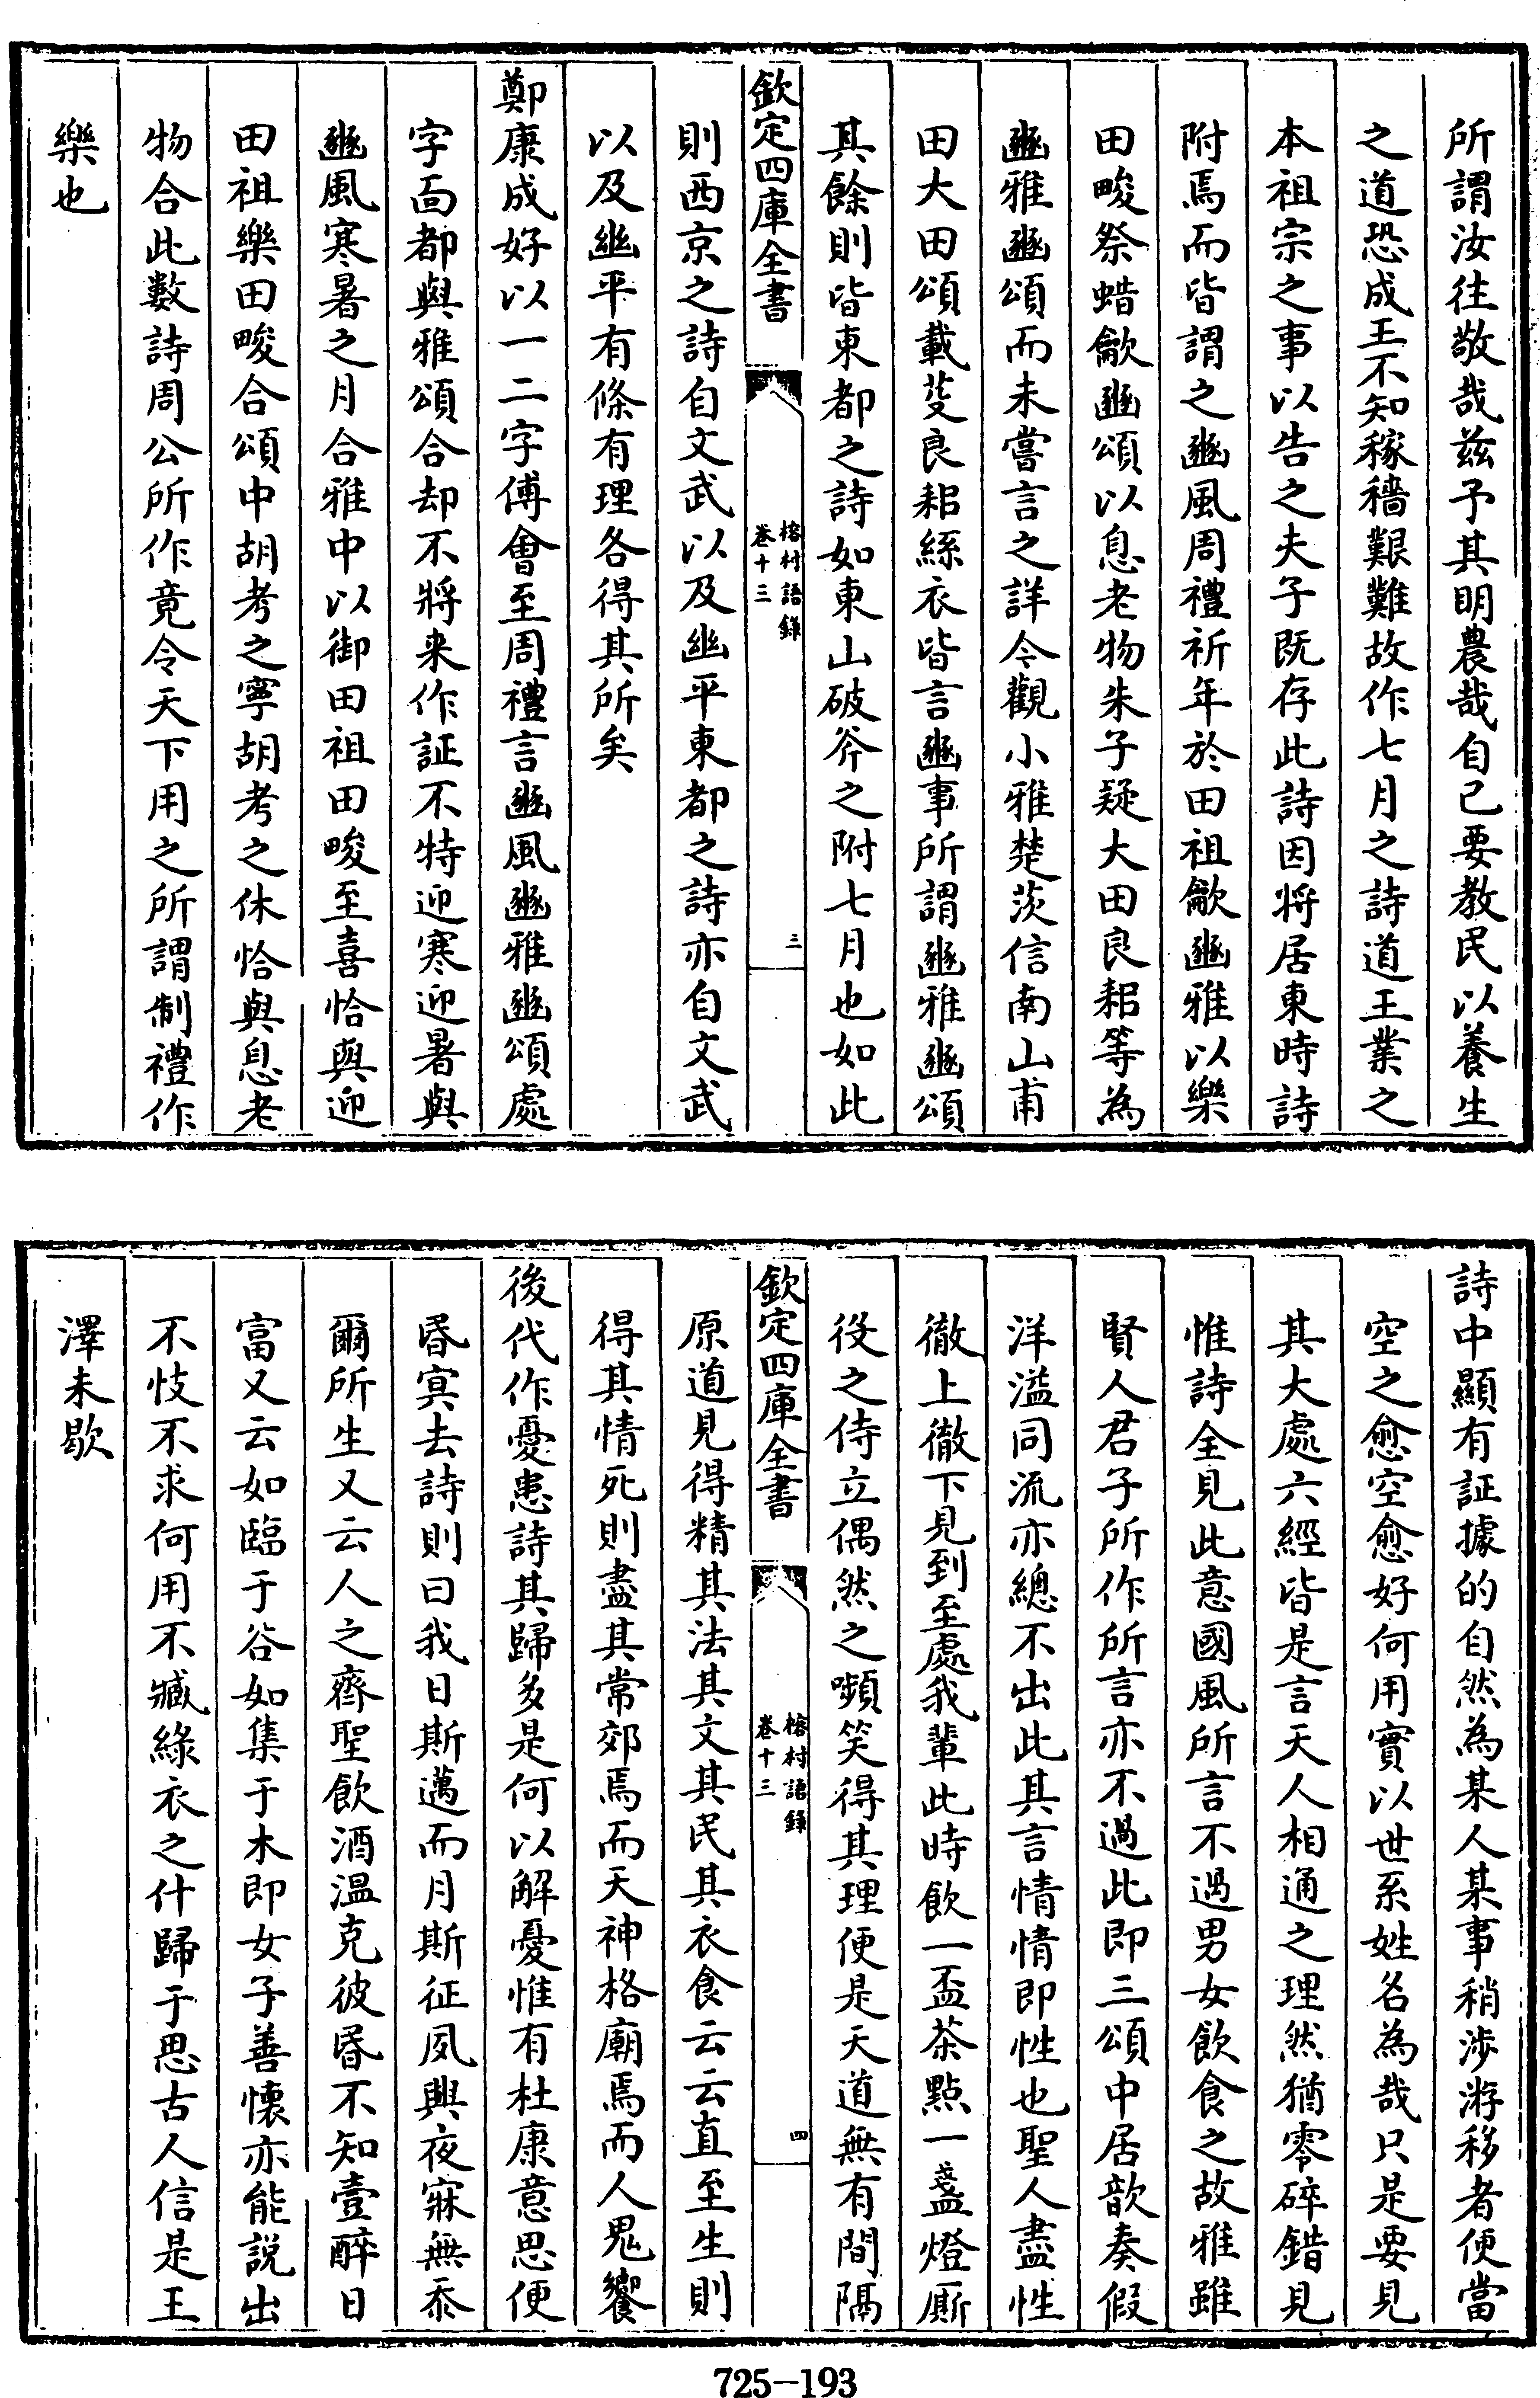 所謂汝往敬哉兹予其明農哉自己要教民以養生
之道恐成王不知稼穡艱難故作七月之詩道王業之
本祖宗之事以告之夫子既存此詩因将居東時詩
附焉而皆謂之豳風周禮祈年於田祖龡豳雅以樂
田畯祭蜡龡豳頌以息老物朱子疑大田良耜等為
豳雅豳頌而未嘗言之詳今觀小雅楚茨信南山甫
田大田頌載芟良耜絲衣皆言豳事所謂豳雅豳頌
其餘則皆東都之詩如東山破斧之附七月也如此
欽定四庫全書
榕村語錄
卷十三
三
則西京之詩自文武以及幽平東都之詩亦自文武
以及幽平有條有理各得其所矣
鄭康成好以一二字傅會至周禮言豳風豳雅豳頌處
字面都與雅頌合却不將来作証不特迎寒迎暑與
豳風寒暑之月合雅中以御田祖田畯至喜恰與迎
田祖樂田畯合頌中胡考之寧胡考之休恰與息老
物合此數詩周公所作竟令天下用之所謂制禮作
樂也
詩中顯有証據的自然為某人某事稍涉游移者便當
空之愈空愈好何用實以世系姓名為哉只是要見
其大處六經皆是言天人相通之理然猶零碎錯見
惟詩全見此意國風所言不過男女飲食之故雅雖
賢人君子所作所言亦不過此即三頌中居歆奏假
洋溢同流亦總不出此其言情情即性也聖人盡性
徹上徹下見到至處我輩此時飲一盃茶點一盞燈厮
役之侍立偶然之嚬笑得其理便是天道無有間隔
欽定四庫全書
榕村語錄
卷十三
四
原道見得精其法其文其民其衣食云云直至生則
得其情死則盡其常郊焉而天神格廟焉而人鬼饗
後代作憂患詩其歸多是何以解憂惟有杜康意思便
昏㝠去詩則曰我日斯邁而月斯征夙興夜寐無忝
爾所生又云人之齊聖飲酒温克彼昏不知壹醉日
富又云如臨于谷如集于木即女子善懷亦能說出
不忮不求何用不臧緑衣之什歸于思古人信是王
澤未歇
725-193